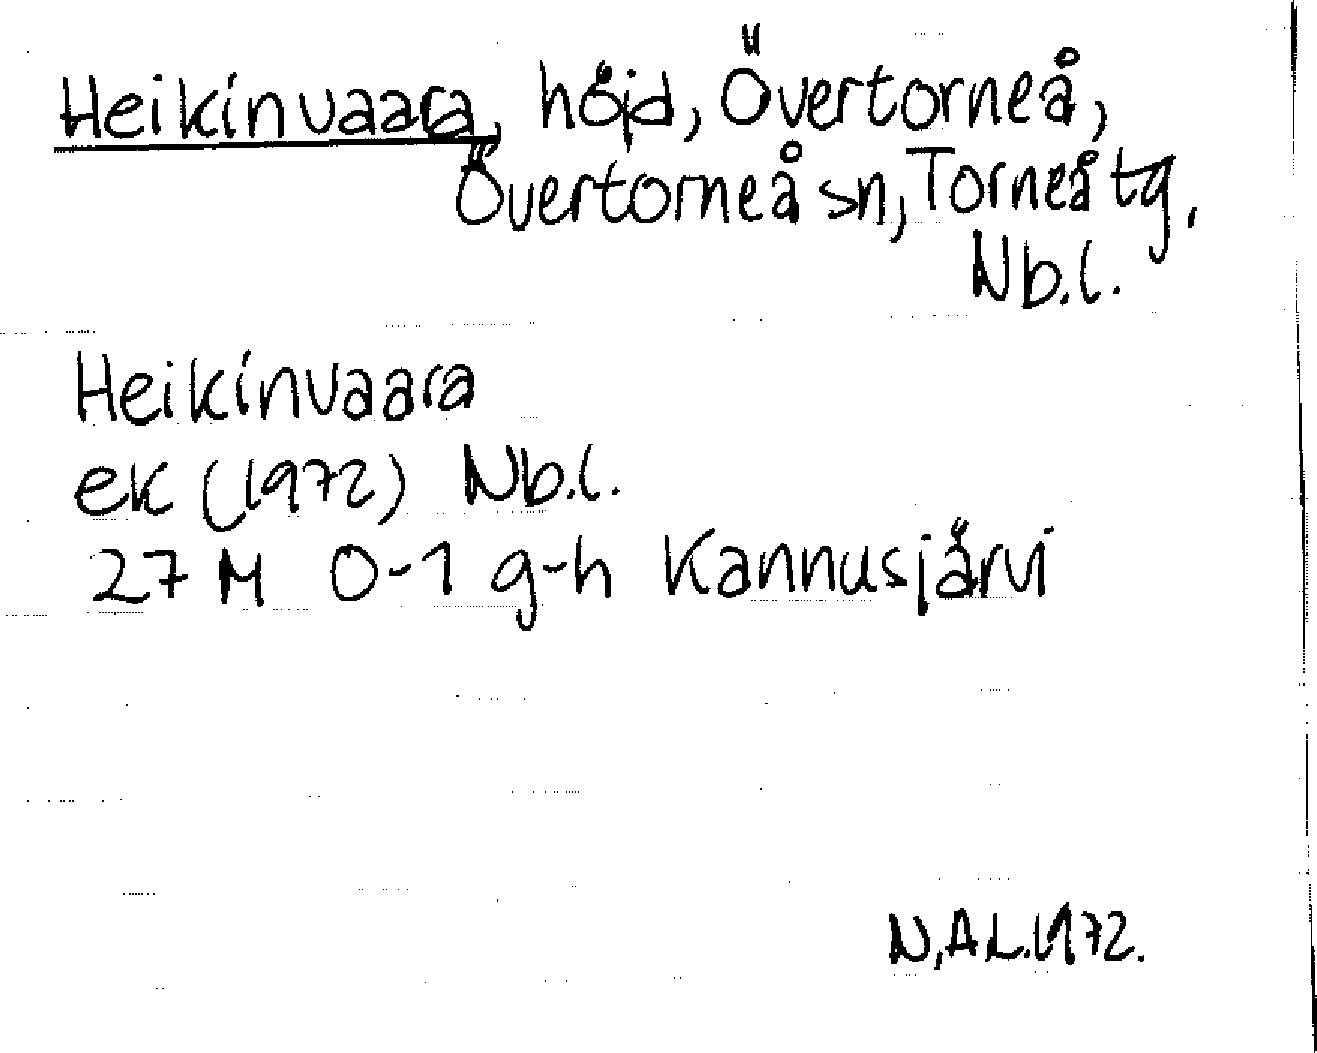 Heikinvaara, höjd, Övertorneå,
Övertorneå sn, Torneå tg,
Nb.l.
Heikinvaara
ek (1972) Nb.l.
27 M 0-1 g-h Kannusjärvi
N, A L. 1972.